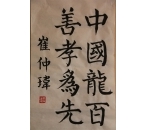 中國龍百
善孝為先
崔仲瑋